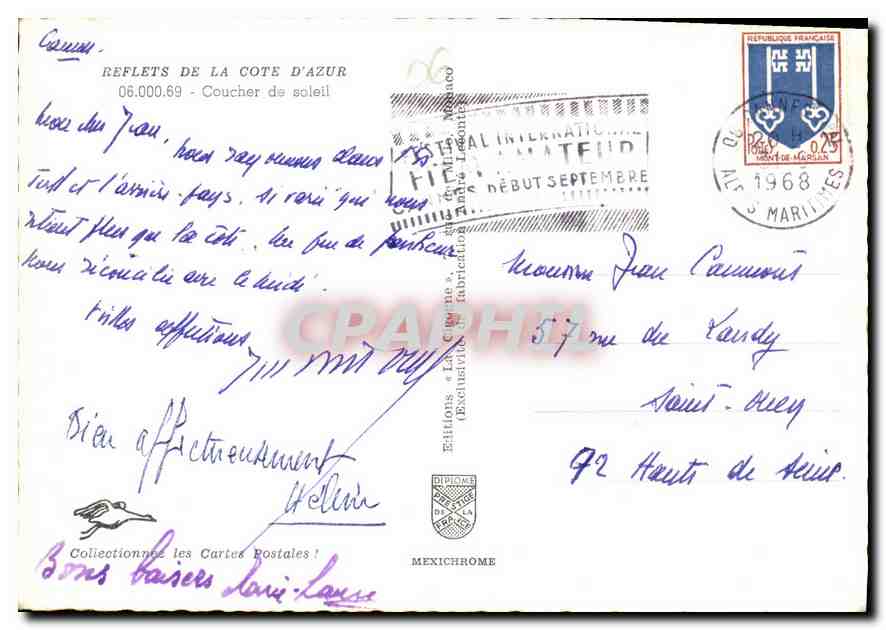 Cannes.
REFLETS DE LA COTE D'AZUR
06.000.69 - Coucher de soleil
Mon cher Jean,
nous rayonnons dans
et l'arrière-pays, si varié qui nous
plus que la côte.
Nous réconcilie avec le midi.
affections
Bien affectueusement
Hélène
Collectionnez les Cartes Postales !
Bons baisers Marie-Laure
Editions « La Cigogne »,
(Exclusivité de fabrication André Leconte)
Monaco
DIPLOME
PRESTIGE
DE LA
FRANCE
MEXICHROME
FESTIVAL INTERNATIONAL
FILM AMATEUR
DÉBUT SEPTEMBRE
REPUBLIQUE FRANÇAISE
0,25
MONT-DE-MARSAN
CANNES
1968
ALPES MARITIMES
Monsieur Jean Caumont
57 rue du Landy
Saint-Ouen
92 Hauts de Seine.
CPAPHIL